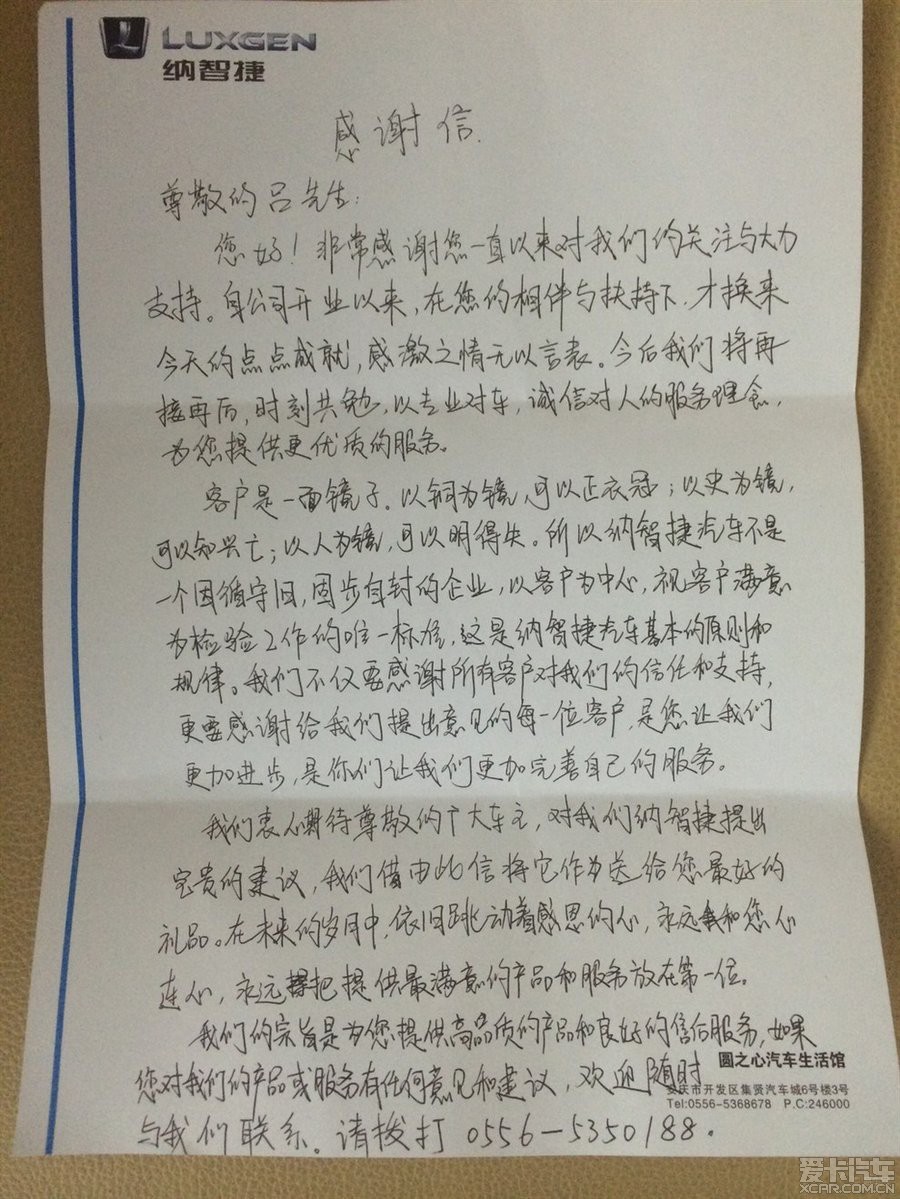 LUXGEN
纳智捷
感谢信.
尊敬的吕先生:
您好！非常感谢您一直以来对我们的关注与大力
支持。自公司开业以来，在您的相伴与扶持下.才换来
今天的点点成就，感激之情无以言表。今后我们将再
接再后，时刻共勉，以专业对车，诚信对人的服务理念，
为您提供更优质的服务。
客户是一面镜子。以铜为镜，可以正衣冠；以史为镜，
可以知兴亡；以人为镜，可以明得失。所以纳智捷汽车不是
一个因循守旧，固步自封的企业，以客户为中心，视客户满意
为检验工作的唯一标准，这是纳智捷汽车基本的原则和
规律。我们不仅要感谢所有客户对我们的信任和支持，
更要感谢给我们提出意见的每一位客户，是您让我们
更加进步，是你们让我们更加完善自己的服务。
我们衷心期待尊敬的广大车主，对我们纳智捷提出
宝贵的建议，我们借由此信将它作为送给您最好的
礼品。在未来的岁月中，依旧跳动着感恩的心，永远和您心
连心，永远把提供最满意的产品和服务放在第一位。
我们的宗旨是为您提供高品质的产品和良好的售后服务，如果
圆之心汽车生活馆
您对我们的产品或服务有任何意见和建议，欢迎随时
安庆市开发区集贤汽车城6号楼3号
Tel:0556-5368678 P.C:246000
与我们联系。请拨打 0556-5350188.
爱卡汽车
XCAR.COM.CN